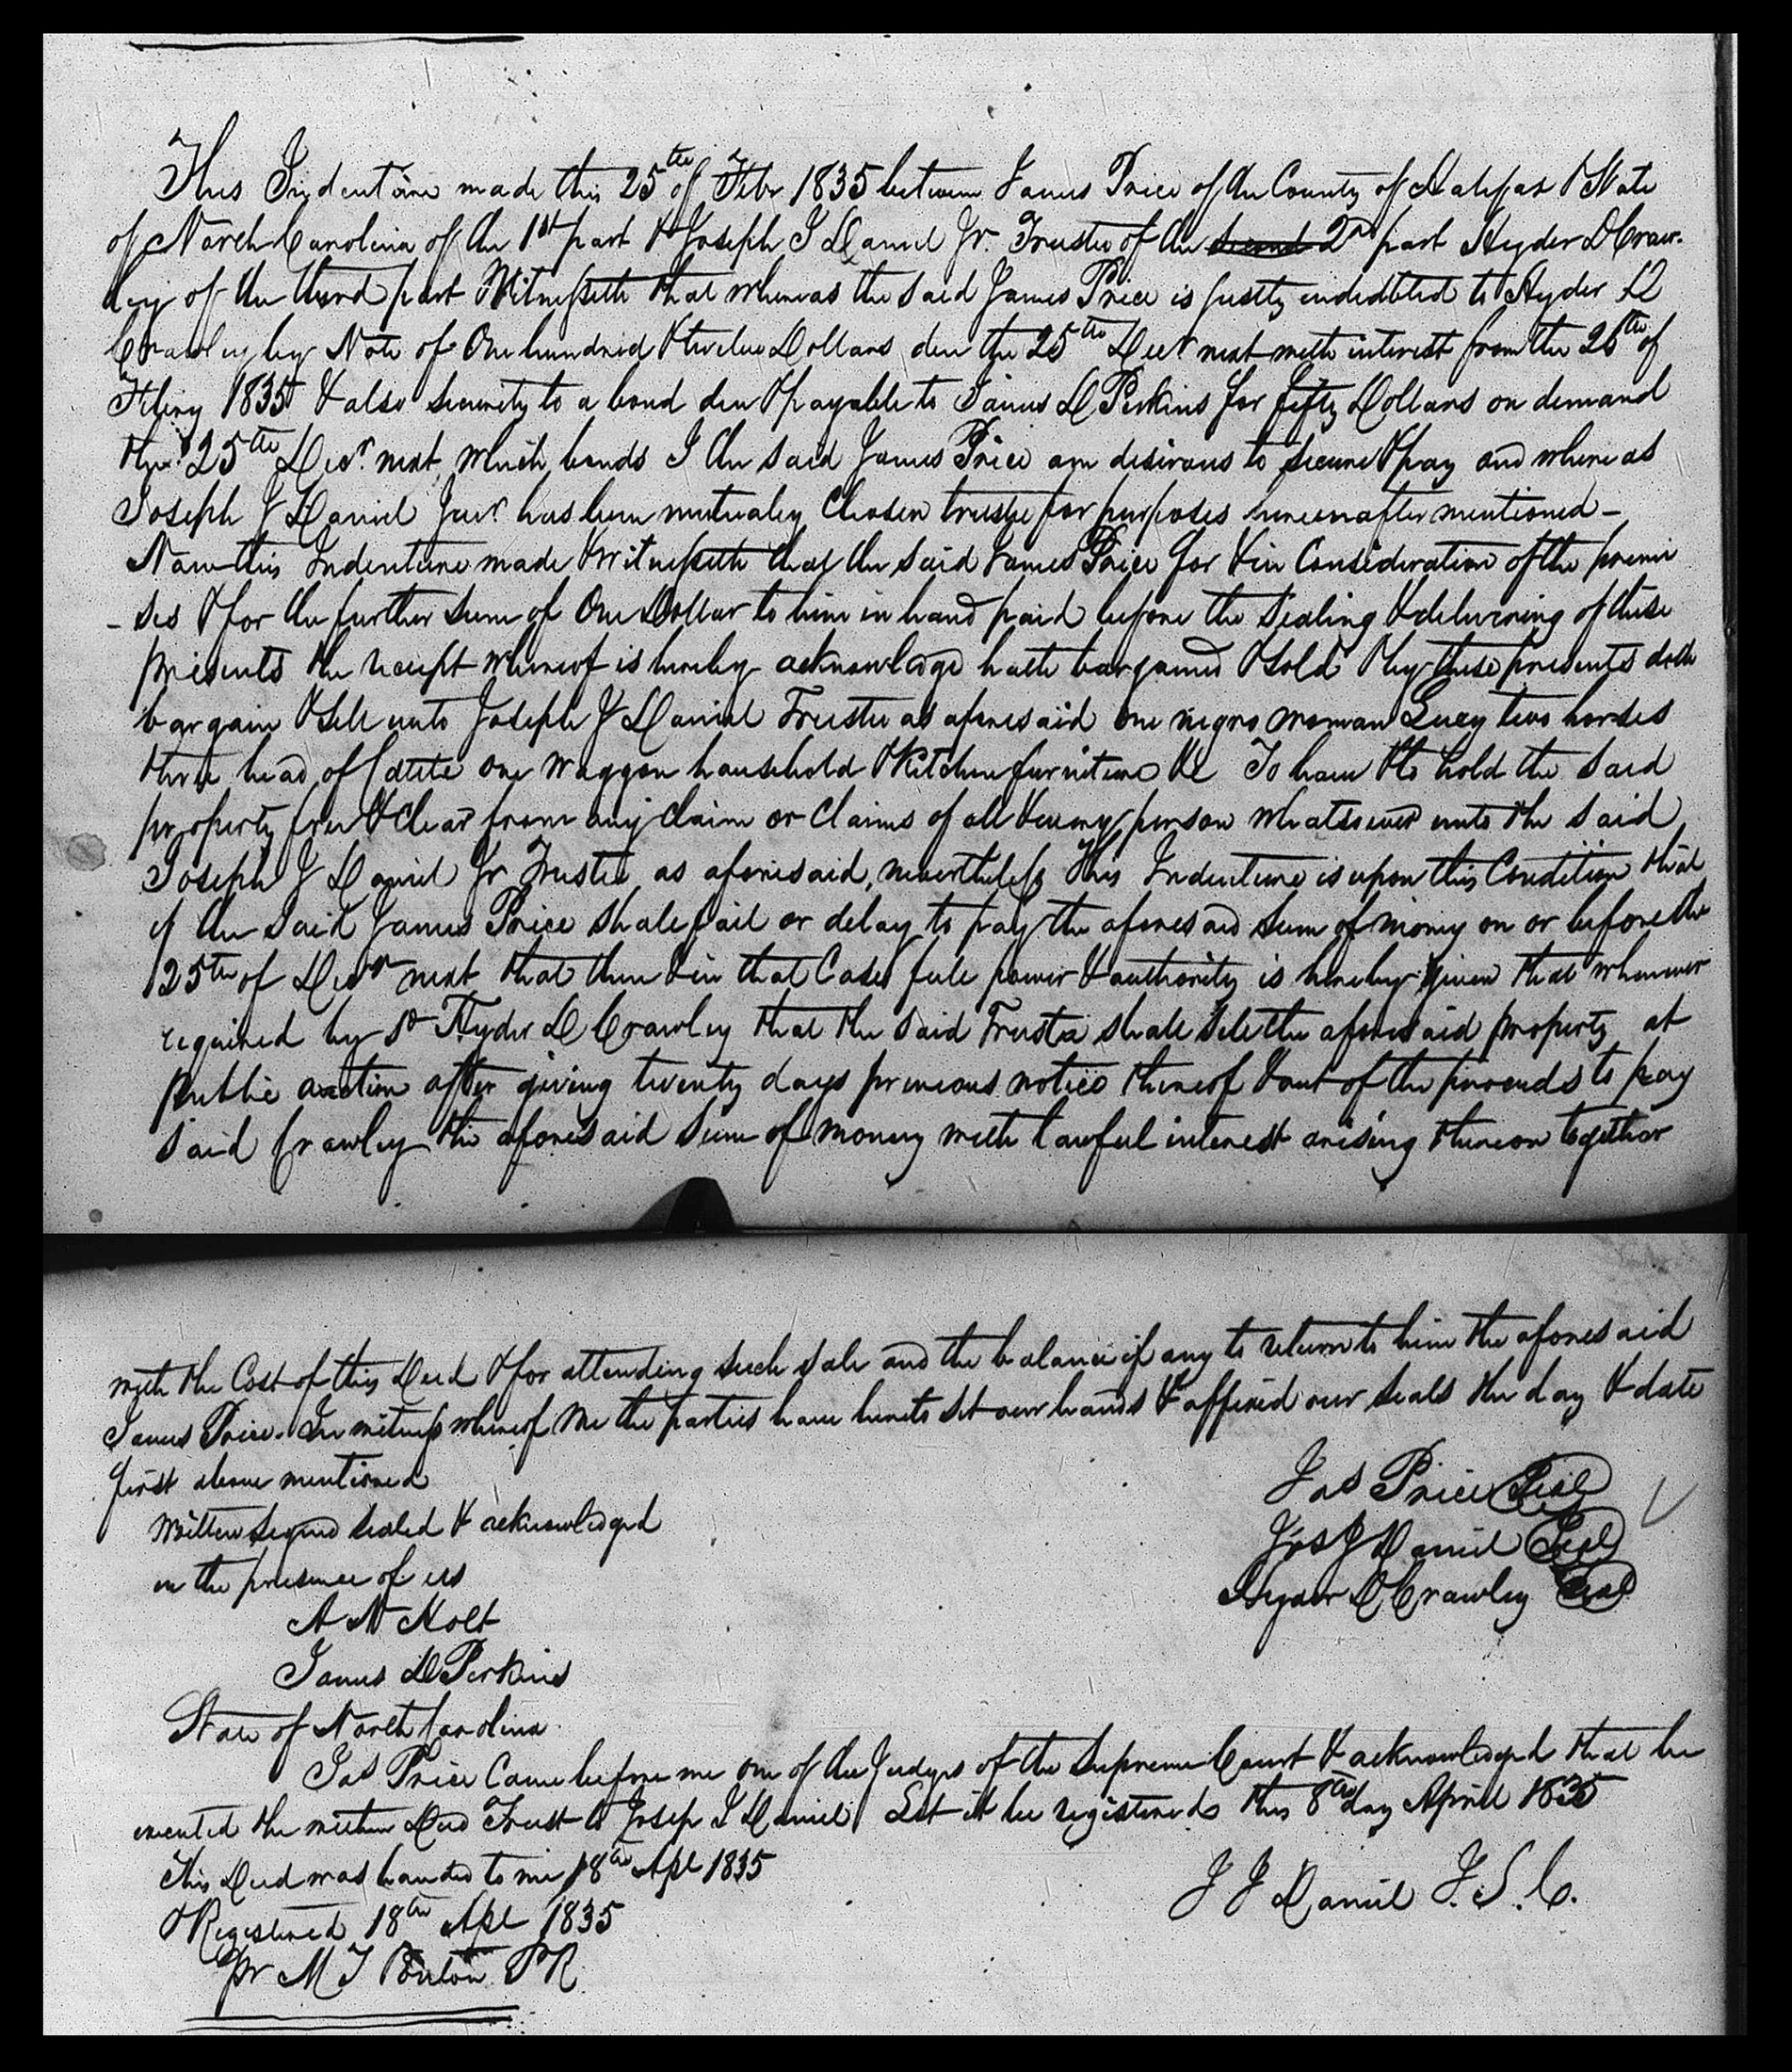 This Indenture made this 25th of Febr 1835 between James Price of the County of Halifax & State
of North Carolina of the 1st part & Joseph J Daniel Jr. Trustee of the second 2d part Hyder D Craw-
ley of the third part Witnesseth that whereas the said James Price is justly indebted to Hyder D
Crawley by Note of One hundred & twelve Dollars due the 25th Decr next with interest from the 26th of
Feby 1835 & also security to a bond due & payable to James D Perkins for fifty Dollars on demand
the 25th Decr. next which bonds I the said James Price am desirous to secure & pay and where as
Joseph J Daniel Junr has been mutualey Chosen trustee for purposes hereinafter mentioned –
Now this Indenture made & Witnesseth that the said James Price for & in Consideration of the premi
- ses & for the further sum of One Dollar to him in hand paid before the sealing & delivering of these
presents the receipt whereof is hereby acknowledge hath bargained & sold & by these presents doth
bargain & sell unto Joseph J Daniel Trustee as aforesaid one negro woman Lucy two horses
three head of Cattle one waggon household & Kitchen furniture &c To have & to hold the said
property free & Clear from any Claim or Claims of all & every person whatsoever unto the said
Joseph J Daniel Jr Trustee as aforesaid, nevertheless this Indenture is upon this Condition that
if the said James Price shall fail or delay to pay the aforesaid sum of money on or before the
25th of Decr next that then & in that Case full power & authority is hereby given that whenever
required by sd Hyder D Crawley that the said Trustee shall sell the aforesaid property at
public auction after giving twenty days previous notice thereof & out of the proceeds to pay
said Crawley the aforesaid sum of money with lawful interest arising thereon together
with the Cost of this Deed & for attending such sale and the balance if any to return to him the aforesaid
James Price. In witness whereof We the parties have hereto set our hands & affixed our seals the day & date
first above mentioned
Written signed sealed & acknowledged
in the presence of us
Jas Price Seal
Jos J Daniel Seal
Hyder D Crawley Seal
A N Holt
James D Perkins
State of North Carolina
Jas Price Came before me one of the Judges of the Supreme Court & acknowledged that he
executed the within Deed Trust to Joseph J Daniel Let it be registered this 8th day April 1835
This Deed was handed to me 18th Apl 1835
J J Daniel J.S.C.
& Registered 18th Apl 1835
pr M T PR